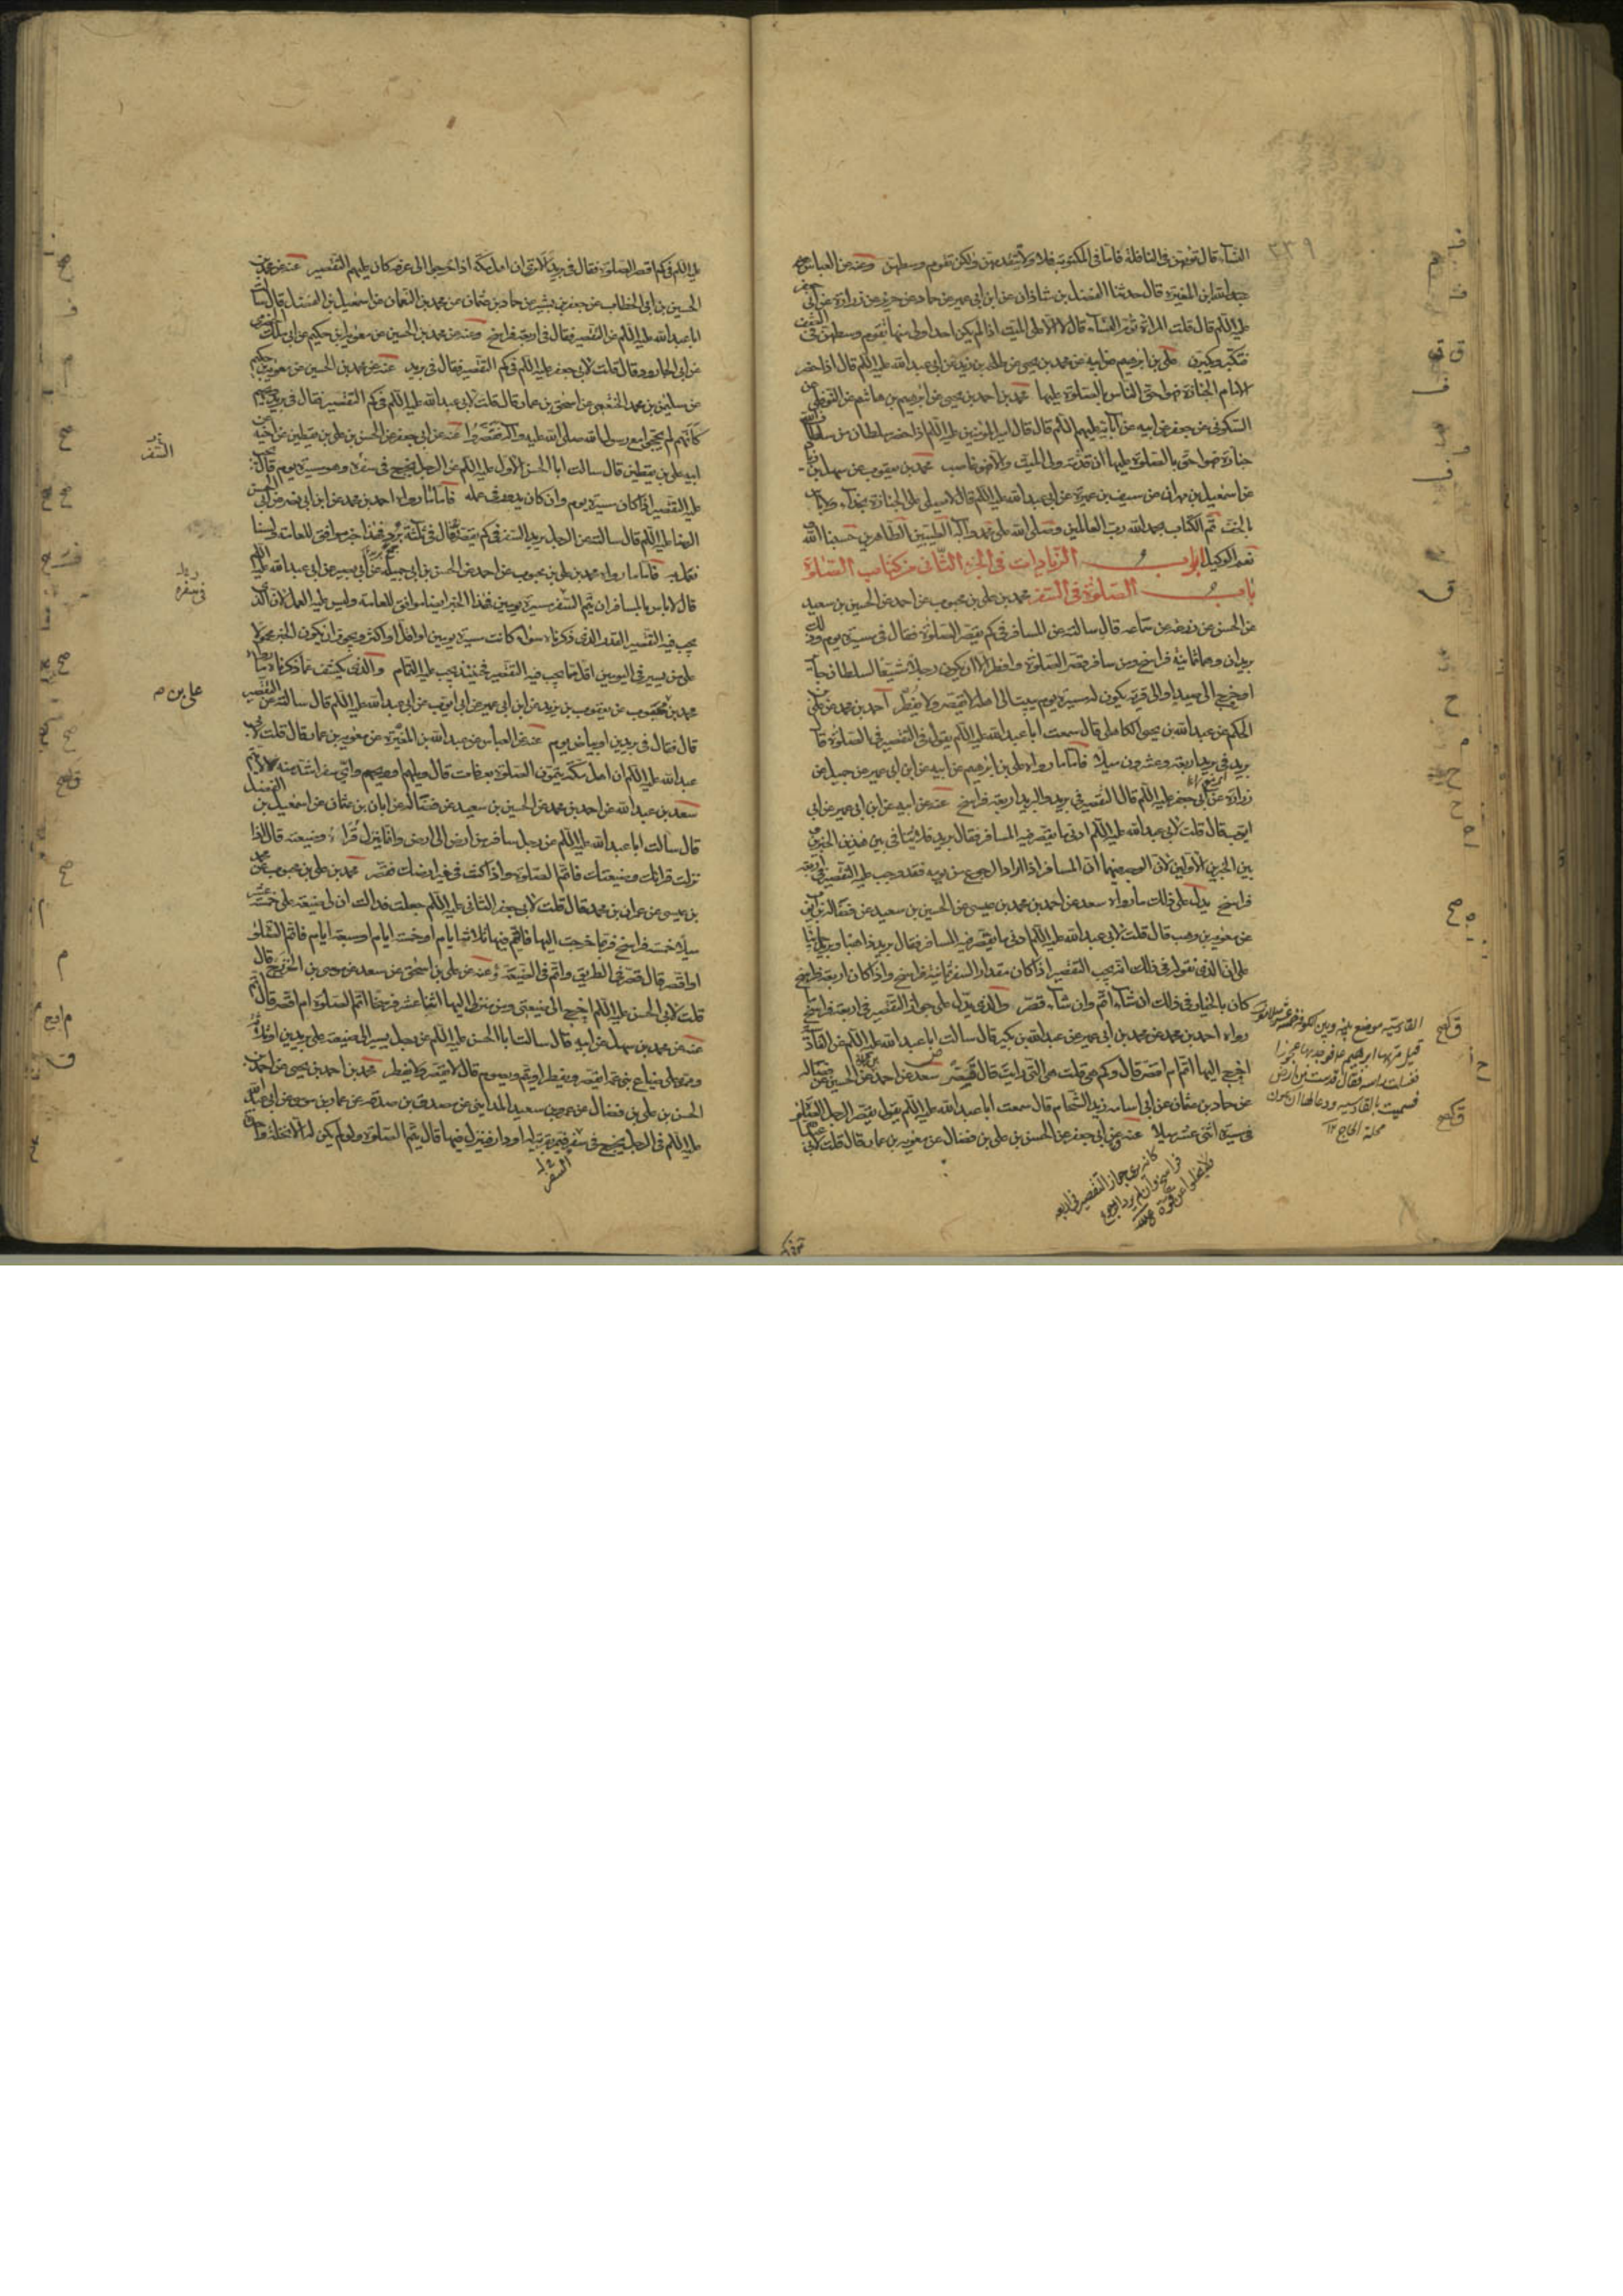 النساء قال تؤمهن في النافلة فاما في المكتوبة فلا ولا تتقدمهن ولكن تقوم وسطهن وعنه عن العباس عن
عبد الله بن المغيرة قال حدثنا الفضل بن شاذان عن ابن ابي عمير عن حماد عن حريز عن زرارة عن ابي جعفر
عليه السلام قال قلت المراة تؤم النساء قال لا الا على الميت اذا لم يكن احد اولى منها تقوم وسطهن في الصف
فتكبر ويكبرن علي بن ابرهيم عن ابيه عن محمد بن يحيى عن طلحة بن زيد عن ابي عبد الله عليه السلام قال اذا حضر
الامام الجنازة فهو احق الناس بالصلوة عليها محمد بن احمد بن يحيى عن ابرهيم بن هاشم عن النوفلي عن
السكوني عن جعفر عن ابيه عن آبائه عليهم السلام قال قال امير المؤمنين عليه السلام اذا حضر سلطان من سلطان الله
جنازة فهو احق بالصلوة عليها ان قدمه ولي الميت والا فهو غاصب محمد بن يعقوب عن سهل بن زياد
عن اسمعيل بن مهران عن سيف بن عميرة عن ابي عبد الله عليه السلام قال لا يصلى على الجنازة بحذاء ولا باس
بالخف تم الكتاب بحمد الله رب العالمين وصلى الله على محمد وآله الطيبين الطاهرين حسبنا الله
نعم الوكيل ابواب الزيادات في الجزء الثاني من كتاب الصلوة
باب الصلوة في السفر محمد بن علي بن محبوب عن احمد عن الحسين بن سعيد
عن الحسن عن زرعة عن سماعة قال سالته عن المسافر في كم يقصر الصلوة فقال في مسيرة يوم وذلك
بريدان وهما ثمانية فراسخ ومن سافر قصر الصلوة وافطر الا ان يكون رجلا مشيعا لسلطان جائر
او خرج الى صيد او الى قرية يكون له مسيرة يوم يبيت الى اهله لا يقصر ولا يفطر احمد بن محمد عن علي بن
الحكم عن عبد الله بن يحيى الكاهلي قال سمعت ابا عبد الله عليه السلام يقول في التقصير في الصلوة قال
بريد في بريد اربعة وعشرون ميلا فاما ما رواه علي بن ابرهيم عن ابيه عن ابن ابي عمير عن جميل عن
زرارة عن ابي جعفر عليه السلام قال التقصير في بريد والبريد اربعة فراسخ عنه عن ابيه عن ابن ابي عمير عن ابي
ايوب قال قلت لابي عبد الله عليه السلام ادنى ما يقصر فيه المسافر فقال بريد فلا تنافي بين هذين الخبرين
بين الخبرين الاولين لان الوجه فيهما ان المسافر اذا اراد الرجوع من يومه فقد وجب عليه التقصير في اربعة
فراسخ يدل على ذلك ما رواه سعد عن احمد بن محمد بن عيسى عن الحسين بن سعيد عن فضالة بن ايوب
عن معوية بن وهب قال قلت لابي عبد الله عليه السلام ادنى ما يقصر فيه المسافر فقال بريد ذاهبا وبريد جائيا
على ان الذي نقوله في ذلك انه يجب التقصير اذا كان مقدار السفر ثمانية فراسخ واذا كان اربعة فراسخ
كان بالخيار في ذلك ان شاء اتم وان شاء قصر والذي يدل على جواز التقصير في اربعة فراسخ
رواه احمد بن محمد عن محمد بن ابي عمير عن عبد الله بن بكير قال سالت ابا عبد الله عليه السلام عن القادسية
اخرج اليها اتم ام اقصر قال وكم هي قلت هي التي رايت قال قصر سعد عن احمد عن الحسين عن فضالة
عن حماد بن عثمان عن ابي اسامة زيد الشحام قال سمعت ابا عبد الله عليه السلام يقول يقصر الرجل الصلوة
في مسيرة اثني عشر ميلا عنه عن ابي جعفر عن الحسن بن علي بن فضال عن معوية بن عمار قال قلت لابي
عليه السلام في كم اقصر الصلوة فقال في بريد الا ترى ان اهل مكة اذا خرجوا الى عرفة كان عليهم التقصير عنه عن محمد بن
الحسين بن ابي الخطاب عن جعفر بن بشير عن حماد بن عثمان عن محمد بن النعمان عن اسمعيل بن الفضل قال سالت
ابا عبد الله عليه السلام عن التقصير فقال في اربعة فراسخ وعنه عن محمد بن الحسين عن معوية بن حكيم عن ابي مالك الحضرمي
عن ابي الجارود قال قلت لابي جعفر عليه السلام في كم التقصير فقال في بريد عنه عن محمد بن الحسين عن معوية بن حكيم
عن سليمن بن محمد الخثعمي عن اسحق بن عمار قال قلت لابي عبد الله عليه السلام في كم التقصير فقال في بريد ويحهم
كانهم لم يحجوا مع رسول الله صلى الله عليه وآله فقصروا عنه عن ابي جعفر عن الحسن بن علي بن يقطين عن اخيه عن
ابيه علي بن يقطين قال سالت ابا الحسن الاول عليه السلام عن الرجل يخرج في سفره وهو مسيرة يوم قال يجب
عليه التقصير اذا كان مسيرة يوم وان كان يدور في عمله فاما ما رواه احمد بن محمد عن ابن ابي نصر عن ابي الحسن
الرضا عليه السلام قال سالته عن الرجل يريد السفر في كم يقصر فقال في ثلثة برد فهذا خبر موافق للعامة ولسنا
نعمل به فاما ما رواه محمد بن علي بن محبوب عن احمد عن الحسن بن ابي جميلة عن ابي بصير عن ابي عبد الله عليه السلام
قال لا باس بالمسافر ان يتم السفر مسيرة يومين فهذا الخبر ايضا موافق للعامة وليس عليه العمل لان الذي
يجب فيه التقصير القدر الذي ذكرناه سواء كانت مسيرة يومين او اقل او اكثر ويجوز ان يكون الخبر محمولا
على من يسير في اليومين اقل مما يجب فيه التقصير فحينئذ يجب عليه التمام والذي يكشف عما ذكرناه ما رواه
محمد بن محبوب عن يعقوب بن يزيد عن ابن ابي عمير عن ابي ايوب عن ابي عبد الله عليه السلام قال سالته عن التقصير
قال فقال في بريدين او بياض يوم عنه عن العباس عن عبد الله بن المغيرة عن معوية بن عمار قال قلت لابي
عبد الله عليه السلام ان اهل مكة يتمون الصلوة بعرفات قال ويلهم او ويحهم واي سفر اشد منه لا لا تتم
سعد بن عبد الله عن احمد بن محمد عن الحسين بن سعيد عن فضالة عن ابان بن عثمان عن اسمعيل بن الفضل
قال سالت ابا عبد الله عليه السلام عن رجل سافر من ارض الى ارض وانما ينزل قراه وضيعته قال اذا
نزلت قراك وضيعتك فاتم الصلوة واذا كنت في غير ارضك فقصر محمد بن علي بن محبوب عن محمد
بن عيسى عن عمران بن محمد قال قلت لابي جعفر الثاني عليه السلام جعلت فداك ان لي ضيعة على خمسة عشر
ميلا خمسة فراسخ فربما خرجت اليها فاقيم فيها ثلاثة ايام او خمسة ايام او سبعة ايام فاتم الصلوة
او اقصر قال قصر في الطريق واتم في الضيعة وعنه عن علي بن اسحق عن سعد عن موسى بن الخزرج قال
قلت لابي الحسن عليه السلام اخرج الى ضيعتي ومن منزلي اليها اثنا عشر فرسخا اتم الصلوة ام اقصر قال اتم
عنه عن محمد بن سهل عن ابيه قال سالت ابا الحسن عليه السلام عن رجل يسير الى ضيعته على بريدين او ثلثة
وممره على ضياع بني عمه ايقصر ويفطر او يتم ويصوم قال لا يقصر ولا يفطر محمد بن احمد بن يحيى عن احمد بن
الحسن بن علي بن فضال عن عمرو بن سعيد المدايني عن مصدق بن صدقة عن عمار بن موسى عن ابي عبد الله
عليه السلام في الرجل يخرج في سفر فيمر بقرية له او دار فينزل فيها قال يتم الصلوة ولو لم يكن له الا نخلة واحدة